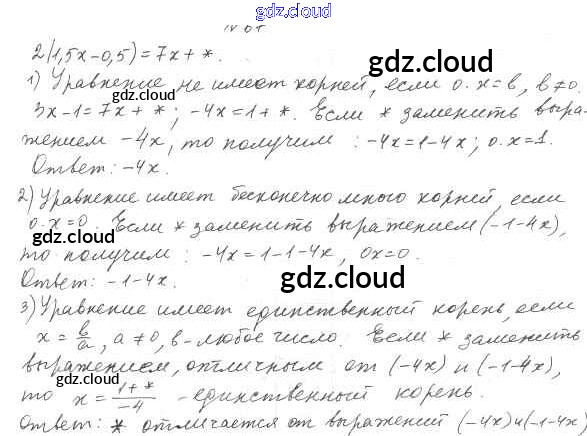 gdz.cloud
2(1,5x-0,5)=7x+*.
gdz.cloud
1) Уравнение не имеет корней, если 0·x=b, b≠0.
gdz.cloud
3x-1=7x+*; -4x=1+*. Если * заменить выра-
жением -4x, то получим: -4x=1-4x; 0·x=1.
Ответ: -4x.
gdz.cloud
2) Уравнение имеет бесконечно много корней, если
0·x=0. Если * заменить выражением (-1-4x),
то получим: -4x=1-1-4x, 0x=0.
gdz.cloud
Ответ: -1-4x.
gdz.cloud
3) Уравнение имеет единственный корень, если
x=b/a, a≠0, b-любое число. Если * заменить
gdz.cloud
выражением, отличным от (-4x) и (-1-4x),
gdz.cloud
то x=1+*/-4 - единственный корень.
Ответ: * отличается от выражений (-4x) и (-1-4x)